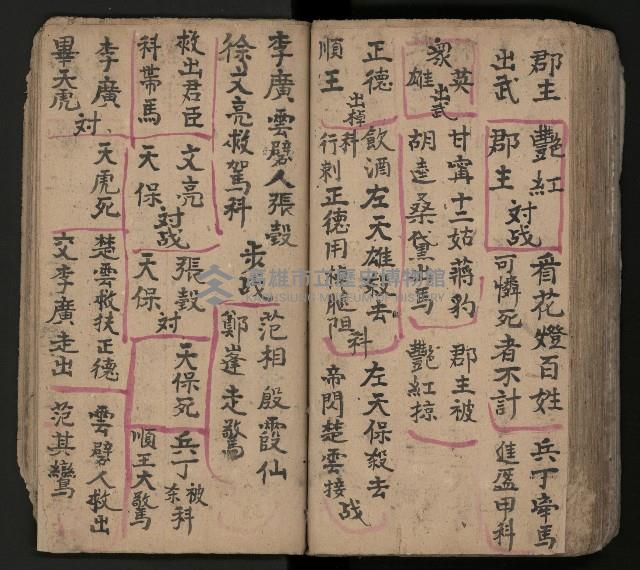 郡主
出武
艷紅
郡主
対战
看花燈百姓
可憐死者不計
兵丁牽馬
進盔甲科
英
雄
衆
出武
甘甯十二姑蔣豹
胡逵桑黛出馬
郡主被
艷紅掠
正德
順王
出棹
科
飲酒左天雄殺去
行刺正德用
腿阻
科
左天保殺去
帝閃楚雲接
战
李廣雲璧人張穀
徐文亮救駕科
步战
范相殷霞仙
鄭蓬走驚
救出君臣
科帶馬
文亮
天保
対战
張穀
天保
対
天保死
兵丁
被
科
順王大驚
李廣
畢天虎
对
天虎死
楚雲救扶正德
文李廣走出
雲璧人救出
范其鸞
高雄市立歷史博物館
KAOHSIUNG MUSEUM OF HISTORY